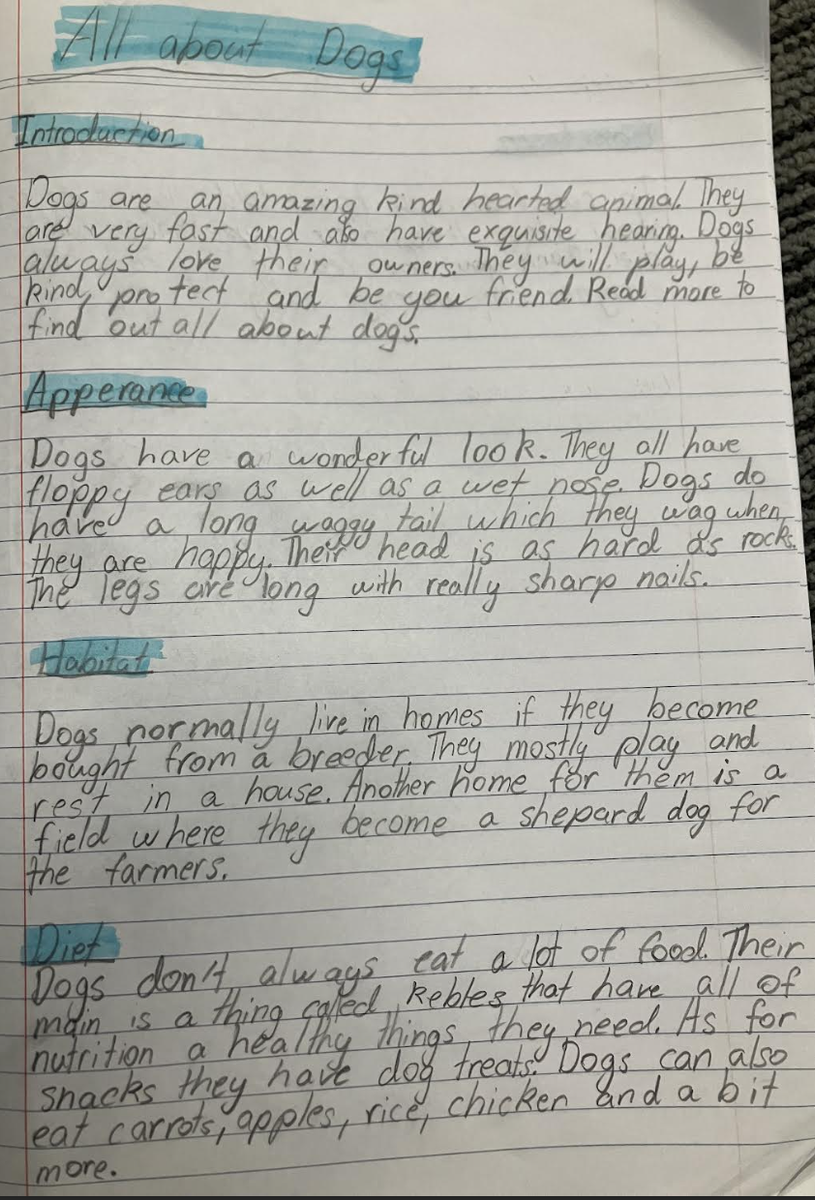 All about Dogs
Introduction
Dogs are an amazing kind hearted animal. They
are very fast and also have exquisite hearing. Dogs
always love their owners. They will play, be
kind, protect and be you friend. Read more to
find out all about dogs.
Apperance
Dogs have a wonderful look. They all have
floppy ears as well as a wet nose. Dogs do
have a long waggy tail which they wag when
they are happy. Their head is as hard as rocks.
The legs are long with really sharp nails.
Habitat
Dogs normally live in homes if they become
bought from a breeder. They mostly play and
rest in a house. Another home for them is a
field where they become a shepard dog for
the farmers.
Diet
Dogs don't always eat a lot of food. Their
main is a thing called Kebles that have all of
nutrition a healthy things they need. As for
snacks they have dog treats. Dogs can also
eat carrots, apples, rice, chicken and a bit
more.